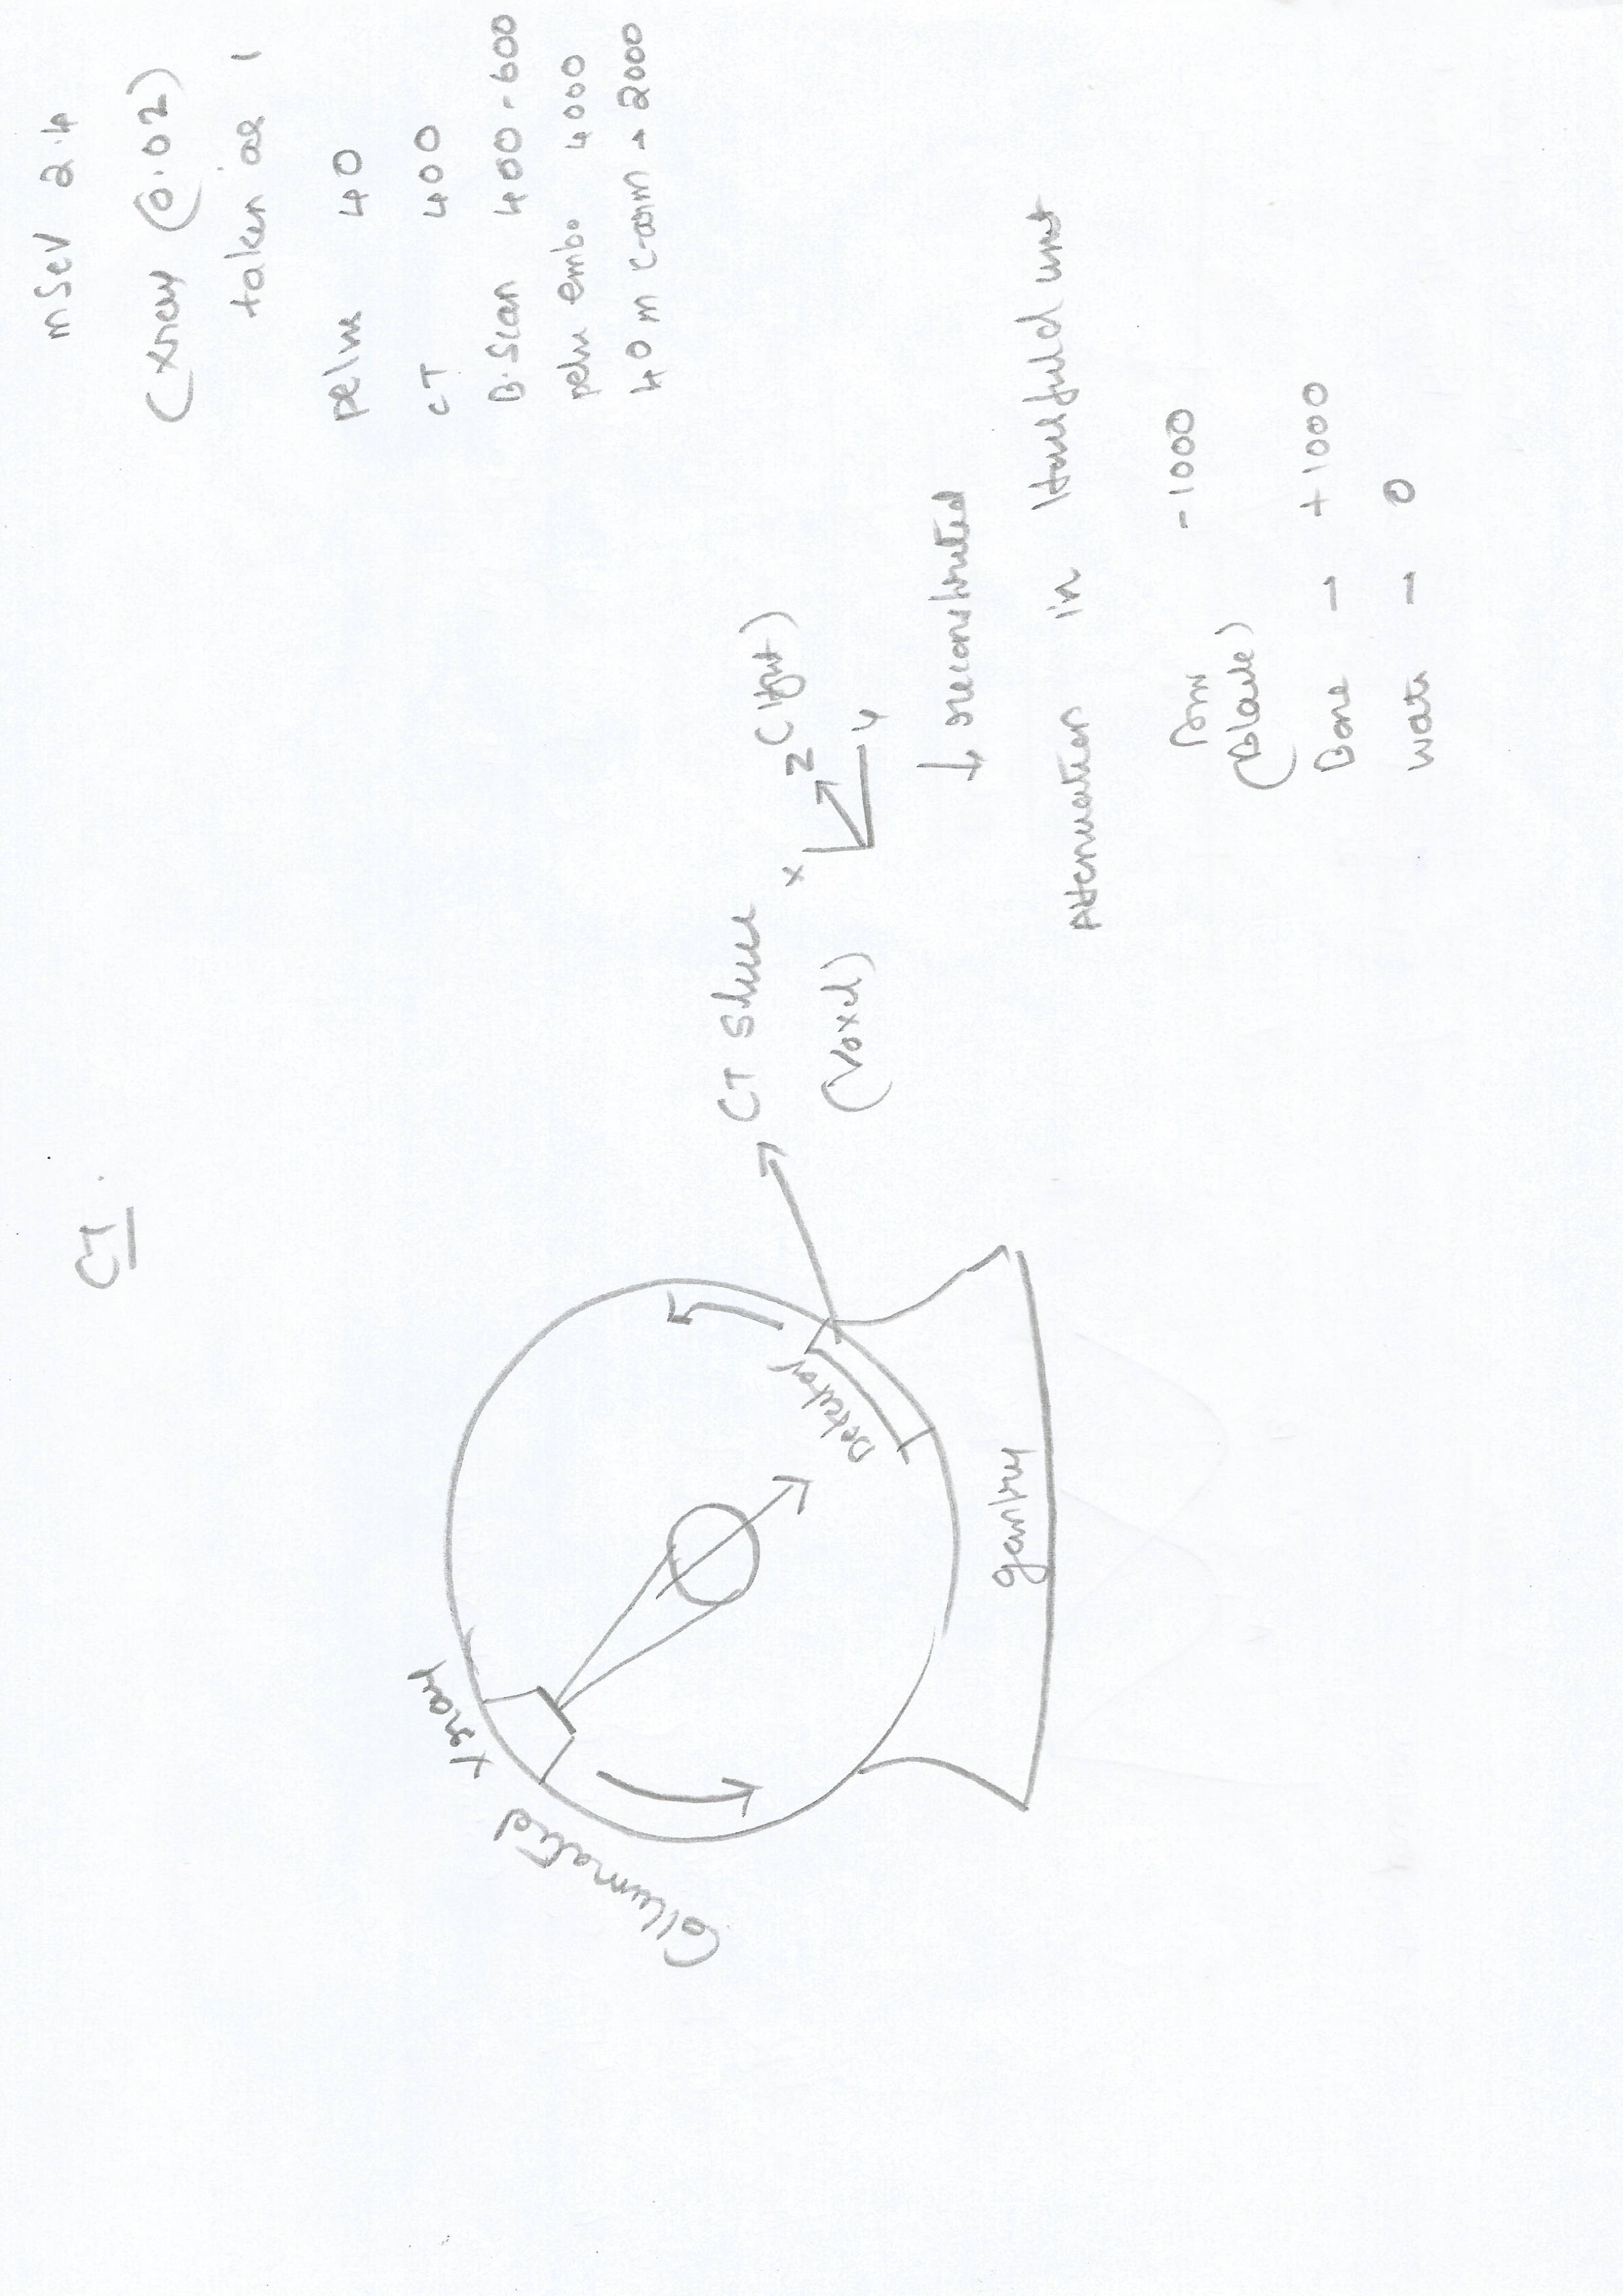 CT
mSeV 2.4
(xray (0.02)
taken as 1
pelvis 40
CT 400
B.Scan 400-600
pelvi embo 4000
40 m C-arm → 2000
Xray
Collumatid
Detector
gantry
CT slice
(Voxel)
X
Z (Hgt)
Y
↓ reconstructed
Attenuation in Hounsfield unit
-1000
(Black)
Bone - +1000
Water - 0